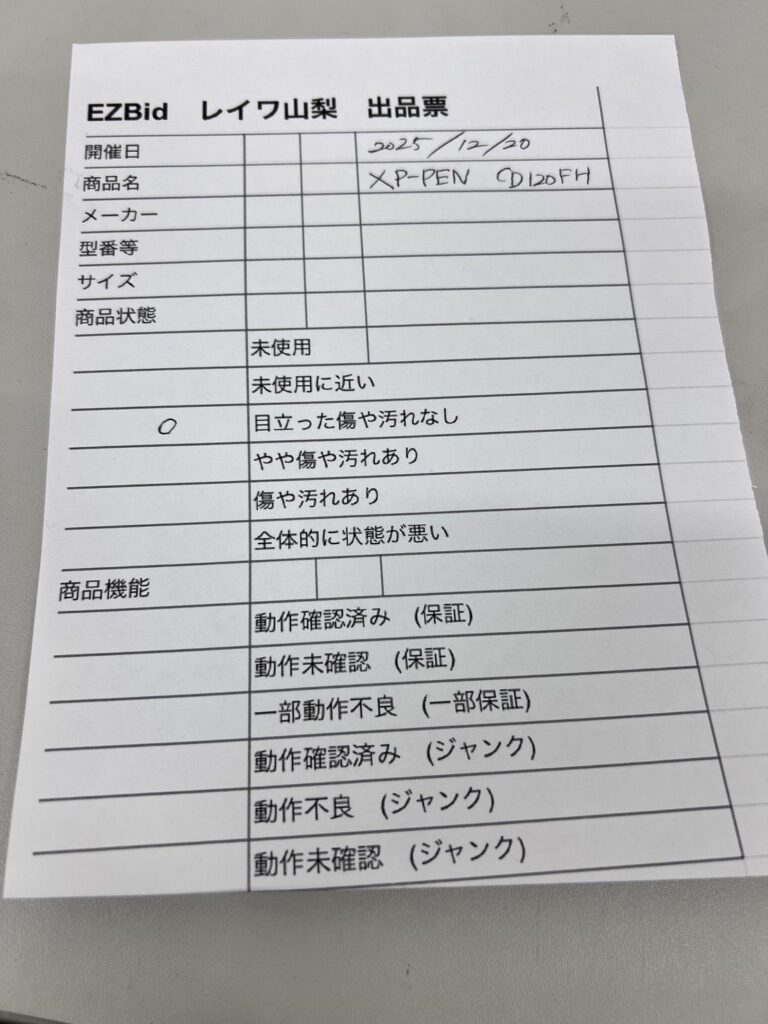 EZBid レイワ山梨 出品票
開催日 2025/12/20
商品名 XP-PEN CD120FH
メーカー
型番等
サイズ
商品状態
未使用
未使用に近い
○ 目立った傷や汚れなし
やや傷や汚れあり
傷や汚れあり
全体的に状態が悪い
商品機能
動作確認済み (保証)
動作未確認 (保証)
一部動作不良 (一部保証)
動作確認済み (ジャンク)
動作不良 (ジャンク)
動作未確認 (ジャンク)